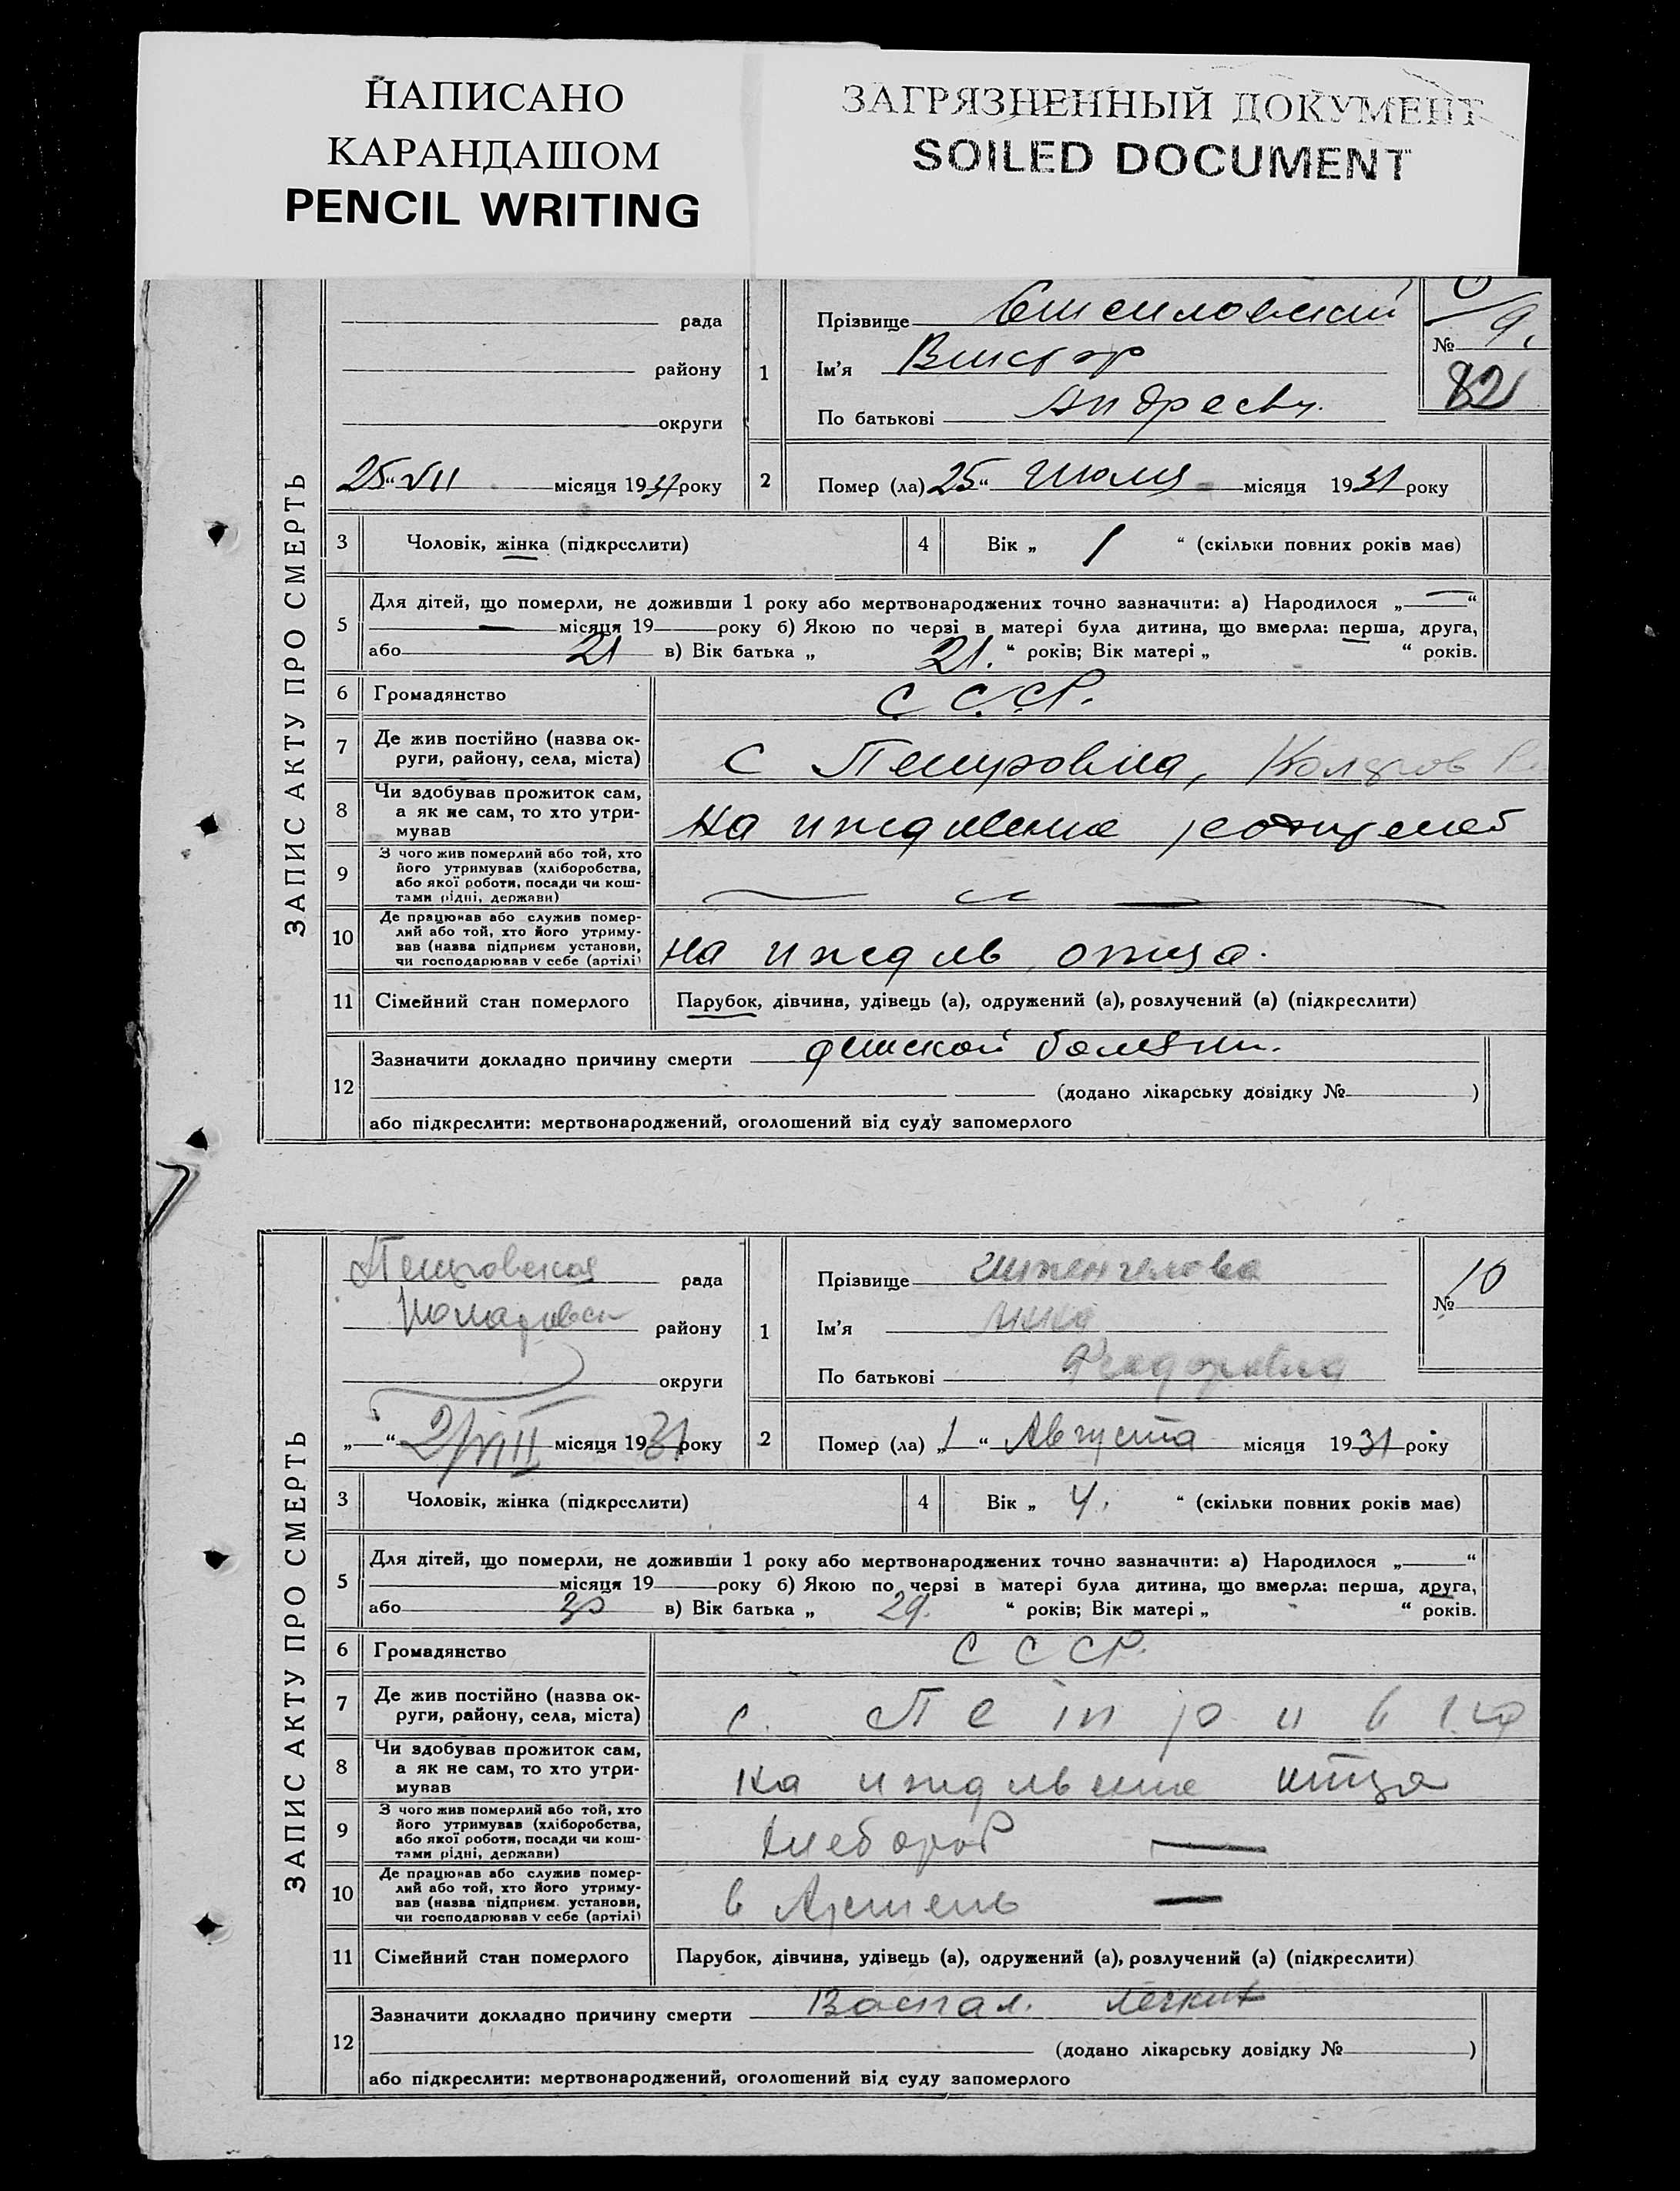 НАПИСАНО
КАРАНДАШОМ
PENCIL WRITING
ЗАГРЯЗНЕННЫЙ ДОКУМЕНТ
SOILED DOCUMENT
ЗАПИС АКТУ ПРО СМЕРТЬ
рада
району
округи
25 “ VII місяця 1931 року
1
Прізвище
Ім'я Виктор
По батькові Андреевич
№ 9.
82
2 Помер (ла) 25 “ Июля місяця 1931 року
3 Чоловік, жінка (підкреслити)
4 Вік „ 1 “ (скільки повних років має)
5 Для дітей, що померли, не доживши 1 року або мертвонароджених точно зазначити: а) Народилося „—“
— місяця 19 року б) Якою по черзі в матері була дитина, що вмерла: перша, друга,
або 21 в) Вік батька „ 21. “ років; Вік матері „ “ років.
6 Громадянство С.С.С.Р.
7 Де жив постійно (назва ок-
руги, району, села, міста) с Петровка,
8 Чи здобував прожиток сам,
а як не сам, то хто утри-
мував На иждивение родителей
9 З чого жив померлий або той, хто
його утримував (хліборобства,
або якої роботи, посади чи кош-
тами рідні, держави) —
10 Де працював або служив помер-
лий або той, хто його утриму-
вав (назва підприєм. установи,
чи господарював у себе (артілі) на иждив отца.
11 Сімейний стан померлого Парубок, дівчина, удівець (а), одружений (а), розлучений (а) (підкреслити)
12 Зазначити докладно причину смерти детской болезни.
(додано лікарську довідку № )
або підкреслити: мертвонароджений, оголошений від суду запомерлого
ЗАПИС АКТУ ПРО СМЕРТЬ
Петровская рада
району
округи
„—“ 2/VIII місяця 1931 року
1
Прізвище
Ім'я Анна
По батькові Федоровна
№ 10
2 Помер (ла) „1 “ Августа місяця 1931 року
3 Чоловік, жінка (підкреслити)
4 Вік „ 4. “ (скільки повних років має)
5 Для дітей, що померли, не доживши 1 року або мертвонароджених точно зазначити: а) Народилося „ “
місяця 19 року б) Якою по черзі в матері була дитина, що вмерла: перша, друга,
або 30 в) Вік батька „ 29. “ років; Вік матері „ “ років.
6 Громадянство СССР.
7 Де жив постійно (назва ок-
руги, району, села, міста) с. Петровка
8 Чи здобував прожиток сам,
а як не сам, то хто утри-
мував на иждивение отца
9 З чого жив померлий або той, хто
його утримував (хліборобства,
або якої роботи, посади чи кош-
тами рідні, держави) хлебороб —
10 Де працював або служив помер-
лий або той, хто його утриму-
вав (назва підприєм. установи,
чи господарював у себе (артілі) в Артель —
11 Сімейний стан померлого Парубок, дівчина, удівець (а), одружений (а), розлучений (а) (підкреслити)
12 Зазначити докладно причину смерти Воспал. легких
(додано лікарську довідку № )
або підкреслити: мертвонароджений, оголошений від суду запомерлого